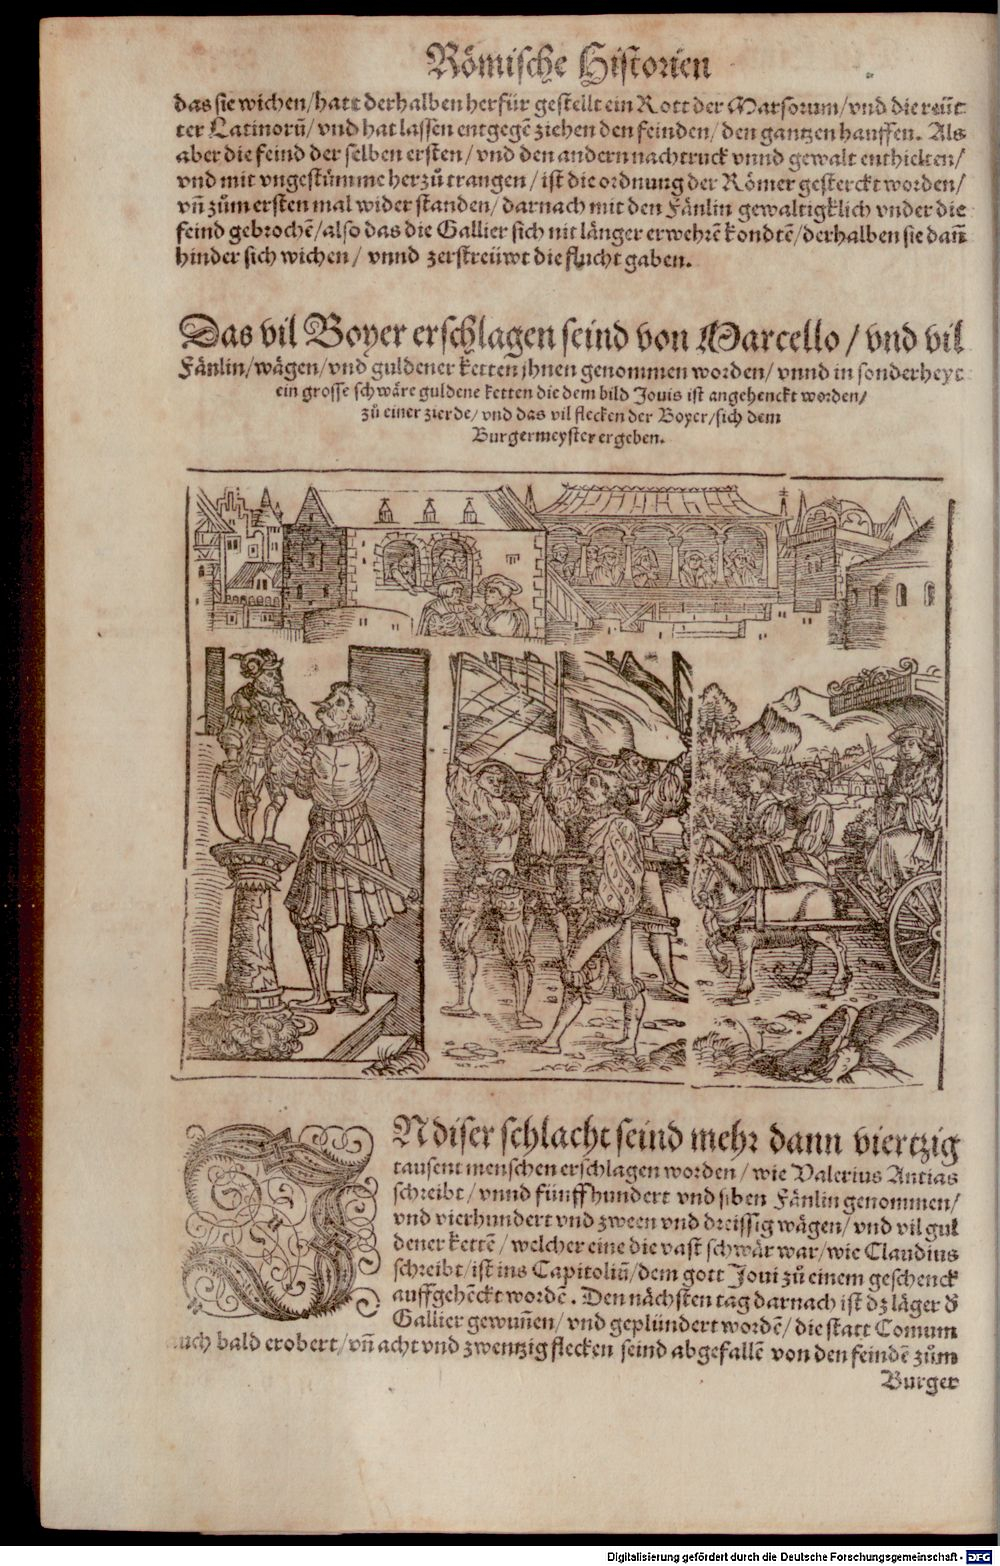 Römische Historien
das sie wichen/hatt derhalben herfür gestellt ein Rott der Marsorum/vnd die reüt
ter Latinorū/vnd hat lassen entgegē ziehen den feinden/den gantzen hauffen. Als
aber die feind der selben ersten/vnd den andern nachtruck vnnd gewalt enthielten/
vnd mit vngestümme herzů trangen/ist die ordnung der Römer gesterckt worden/
vn̄ zům ersten mal widerstanden/darnach mit den Fänlin gewaltigklich vnder die
feind gebrochē/also das die Gallier sich nit länger erwehrē kondtē/derhalben sie dan̄
hinder sich wichen/ vnnd zerstreüwt die flucht gaben.
Das vil Boyer erschlagen seind von Marcello/vnd vil
Fänlin/wägen/vnd guldener ketten jhnen genommen worden/vnnd in sonderheyt
ein grosse schwäre guldene ketten die dem bild Jouis ist angehenckt worden/
zů einer zierde/vnd das vil flecken der Boyer/sich dem
Burgermeyster ergeben.
IN diser schlacht seind mehr dann viertzig
tausent menschen erschlagen worden/wie Valerius Antias
schreibt/vnnd fünffhundert vnd siben Fänlin genommen/
vnd vierhundert vnd zween vnd dreissig wägen/vnd vil gul
dener kettē/welcher eine die vast schwär war/wie Claudius
schreibt/ist ins Capitoliū/dem gott Joui zů einem geschenck
auffgehēckt wordē. Den nächsten tag darnach ist dz läger d̄
Gallier gewun̄en/vnd geplündert wordē/die statt Comum
auch bald erobert/vn̄ acht vnd zwentzig flecken seind abgefallē von den feindē zům
Burger
Digitalisierung gefördert durch die Deutsche Forschungsgemeinschaft - DFG